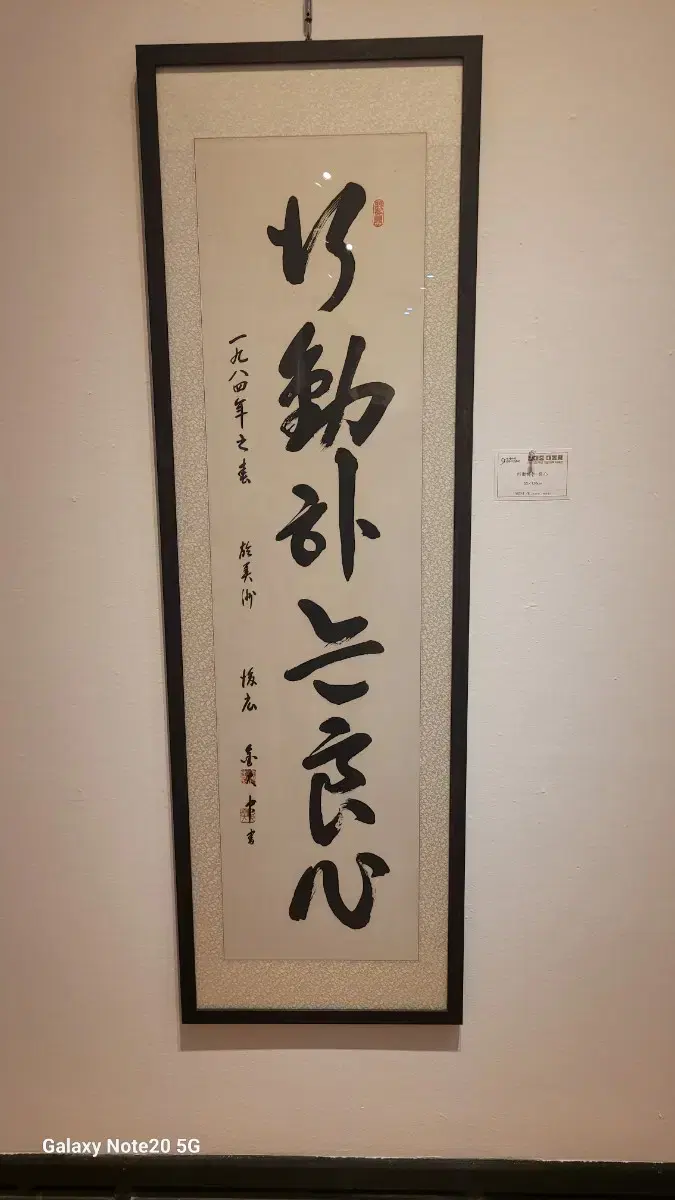 行動하는良心
一九八四年之春 於美洲 後広 金大中 書
Galaxy Note20 5G